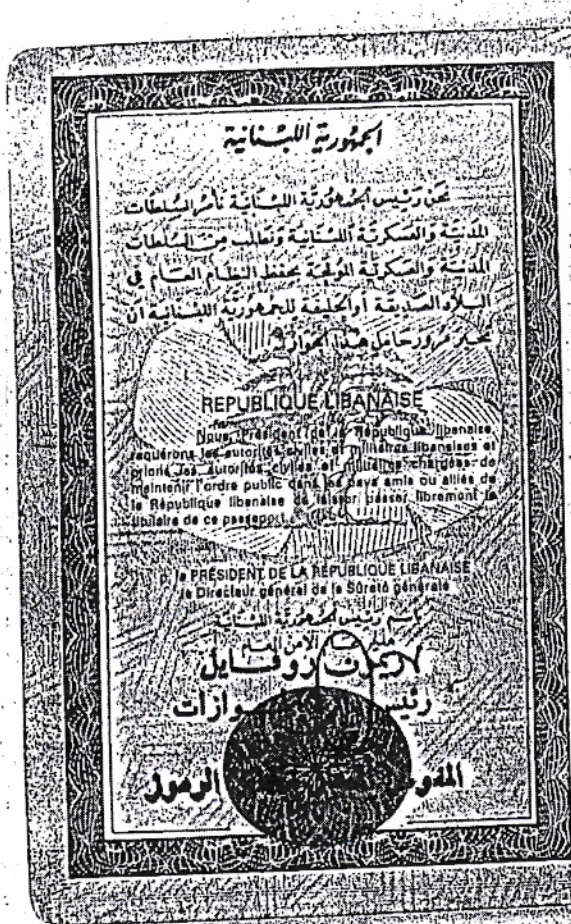 الجمهورية اللبنانية
نحن رئيس الجمهورية اللبنانية نأمر السلطات
المدنية والعسكرية اللبنانية ونطلب من السلطات
المدنية والعسكرية المولجة بحفظ النظام العام في
البلاد الصديقة أو الحليفة للجمهورية اللبنانية ان
مرور حامل هذا الجواز
REPUBLIQUE LIBANAISE
Nous, Président de la République libanaise,
requérons les autorités civiles et militaires libanaises et
prions les autorités civiles et militaires chargées de
maintenir l'ordre public dans les pays amis ou alliés de
la République libanaise de laisser passer librement le
titulaire de ce passeport
le PRÉSIDENT DE LA RÉPUBLIQUE LIBANAISE
le Directeur général de la Sûreté générale
باسم رئيس الجمهورية اللبنانية
الأمن العام
روفايل
رئيس